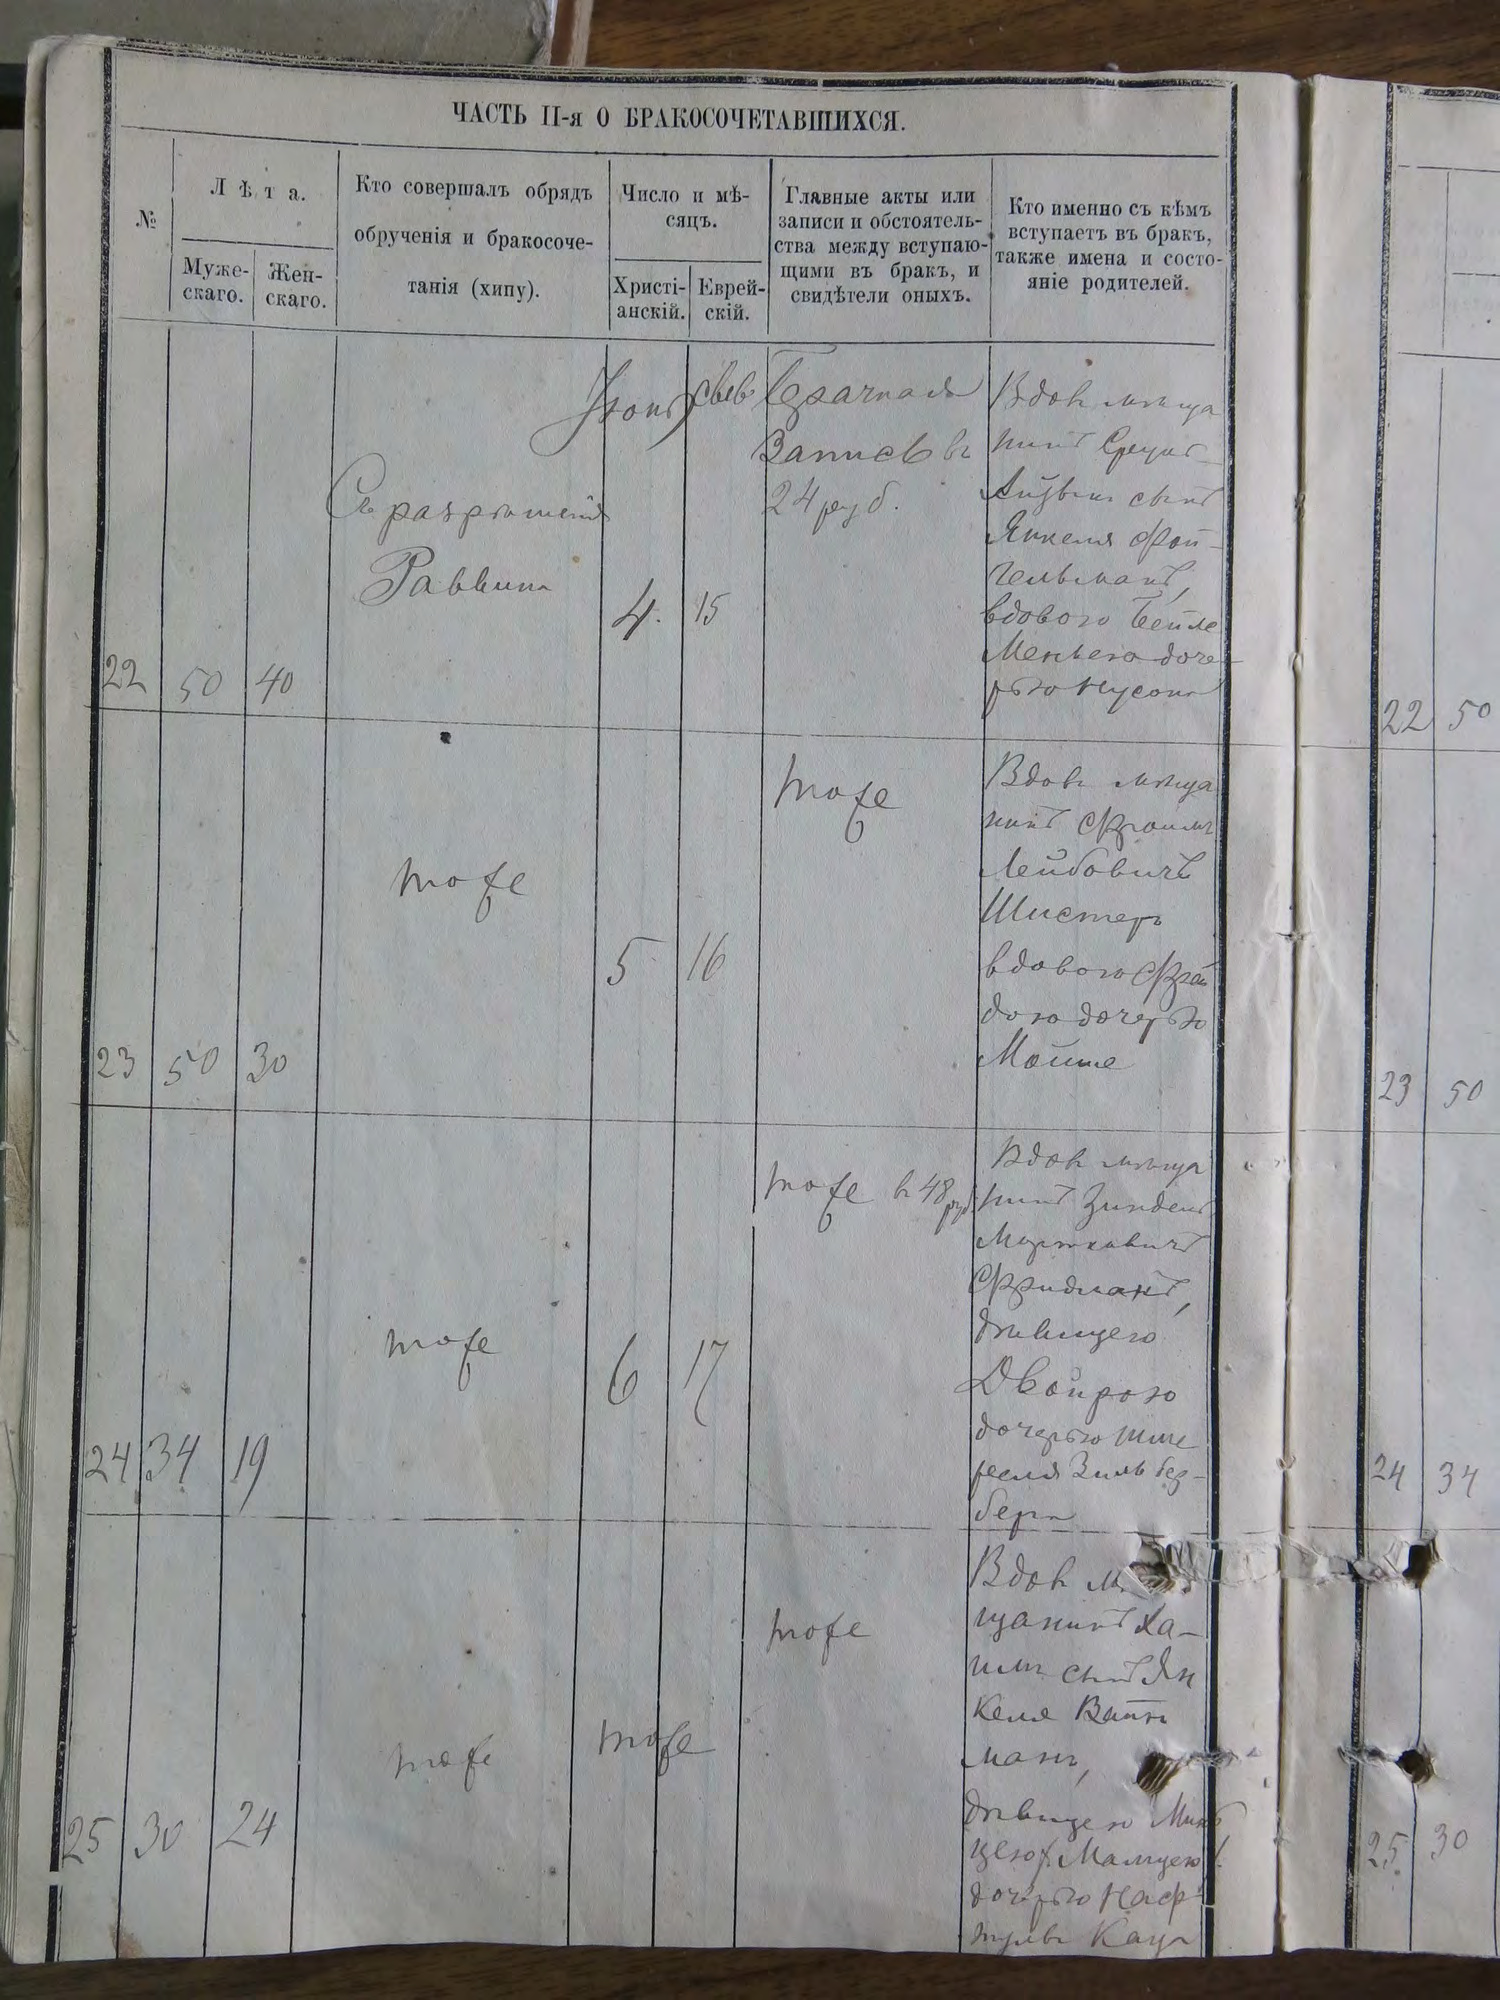 ЧАСТЬ II-я О БРАКОСОЧЕТАВШИХСЯ.
№
Лѣта.
Муже-
скаго.
Жен-
скаго.
Кто совершалъ обрядъ
обрученія и бракосоче-
танія (хипу).
Число и мѣ-
сяцъ.
Христі-
анскій.
Еврей-
скій.
Главные акты или
записи и обстоятель-
ства между вступаю-
щими въ бракъ, и
свидѣтели оныхъ.
Кто именно съ кѣмъ
вступаетъ въ бракъ,
также имена и состо-
яніе родителей.
22
50
40
Съ разрѣшенія
Раввина
4.
15
Брачная
Запись въ
24 руб.
Вдовъ мѣща
нинъ
сынъ
Янкеля Фой-
гельманъ,
вдовою Бейле
доче-
рью Нусона
23
50
30
тоже
5
16
тоже
Вдовъ мѣща
нинъ Фроимъ
Лейбовичъ
Шистеръ
вдовою Фрей
дою дочерью
Мойше
24
34
19
тоже
6
17
тоже в 48
руб
Вдовъ мѣща
нинъ
Мортковичъ
Фридманъ,
дѣвицею
Двойрою
дочерью Шме
реля Зильбер-
берга
25
30
24
тоже
тоже
тоже
Вдовъ
щанинъ Ха-
имъ сынъ Ян
келя Вайн
манъ,
дѣвицею
цею
дочерью Наф-
тулы Каца
22
50
23
50
24
34
25
30